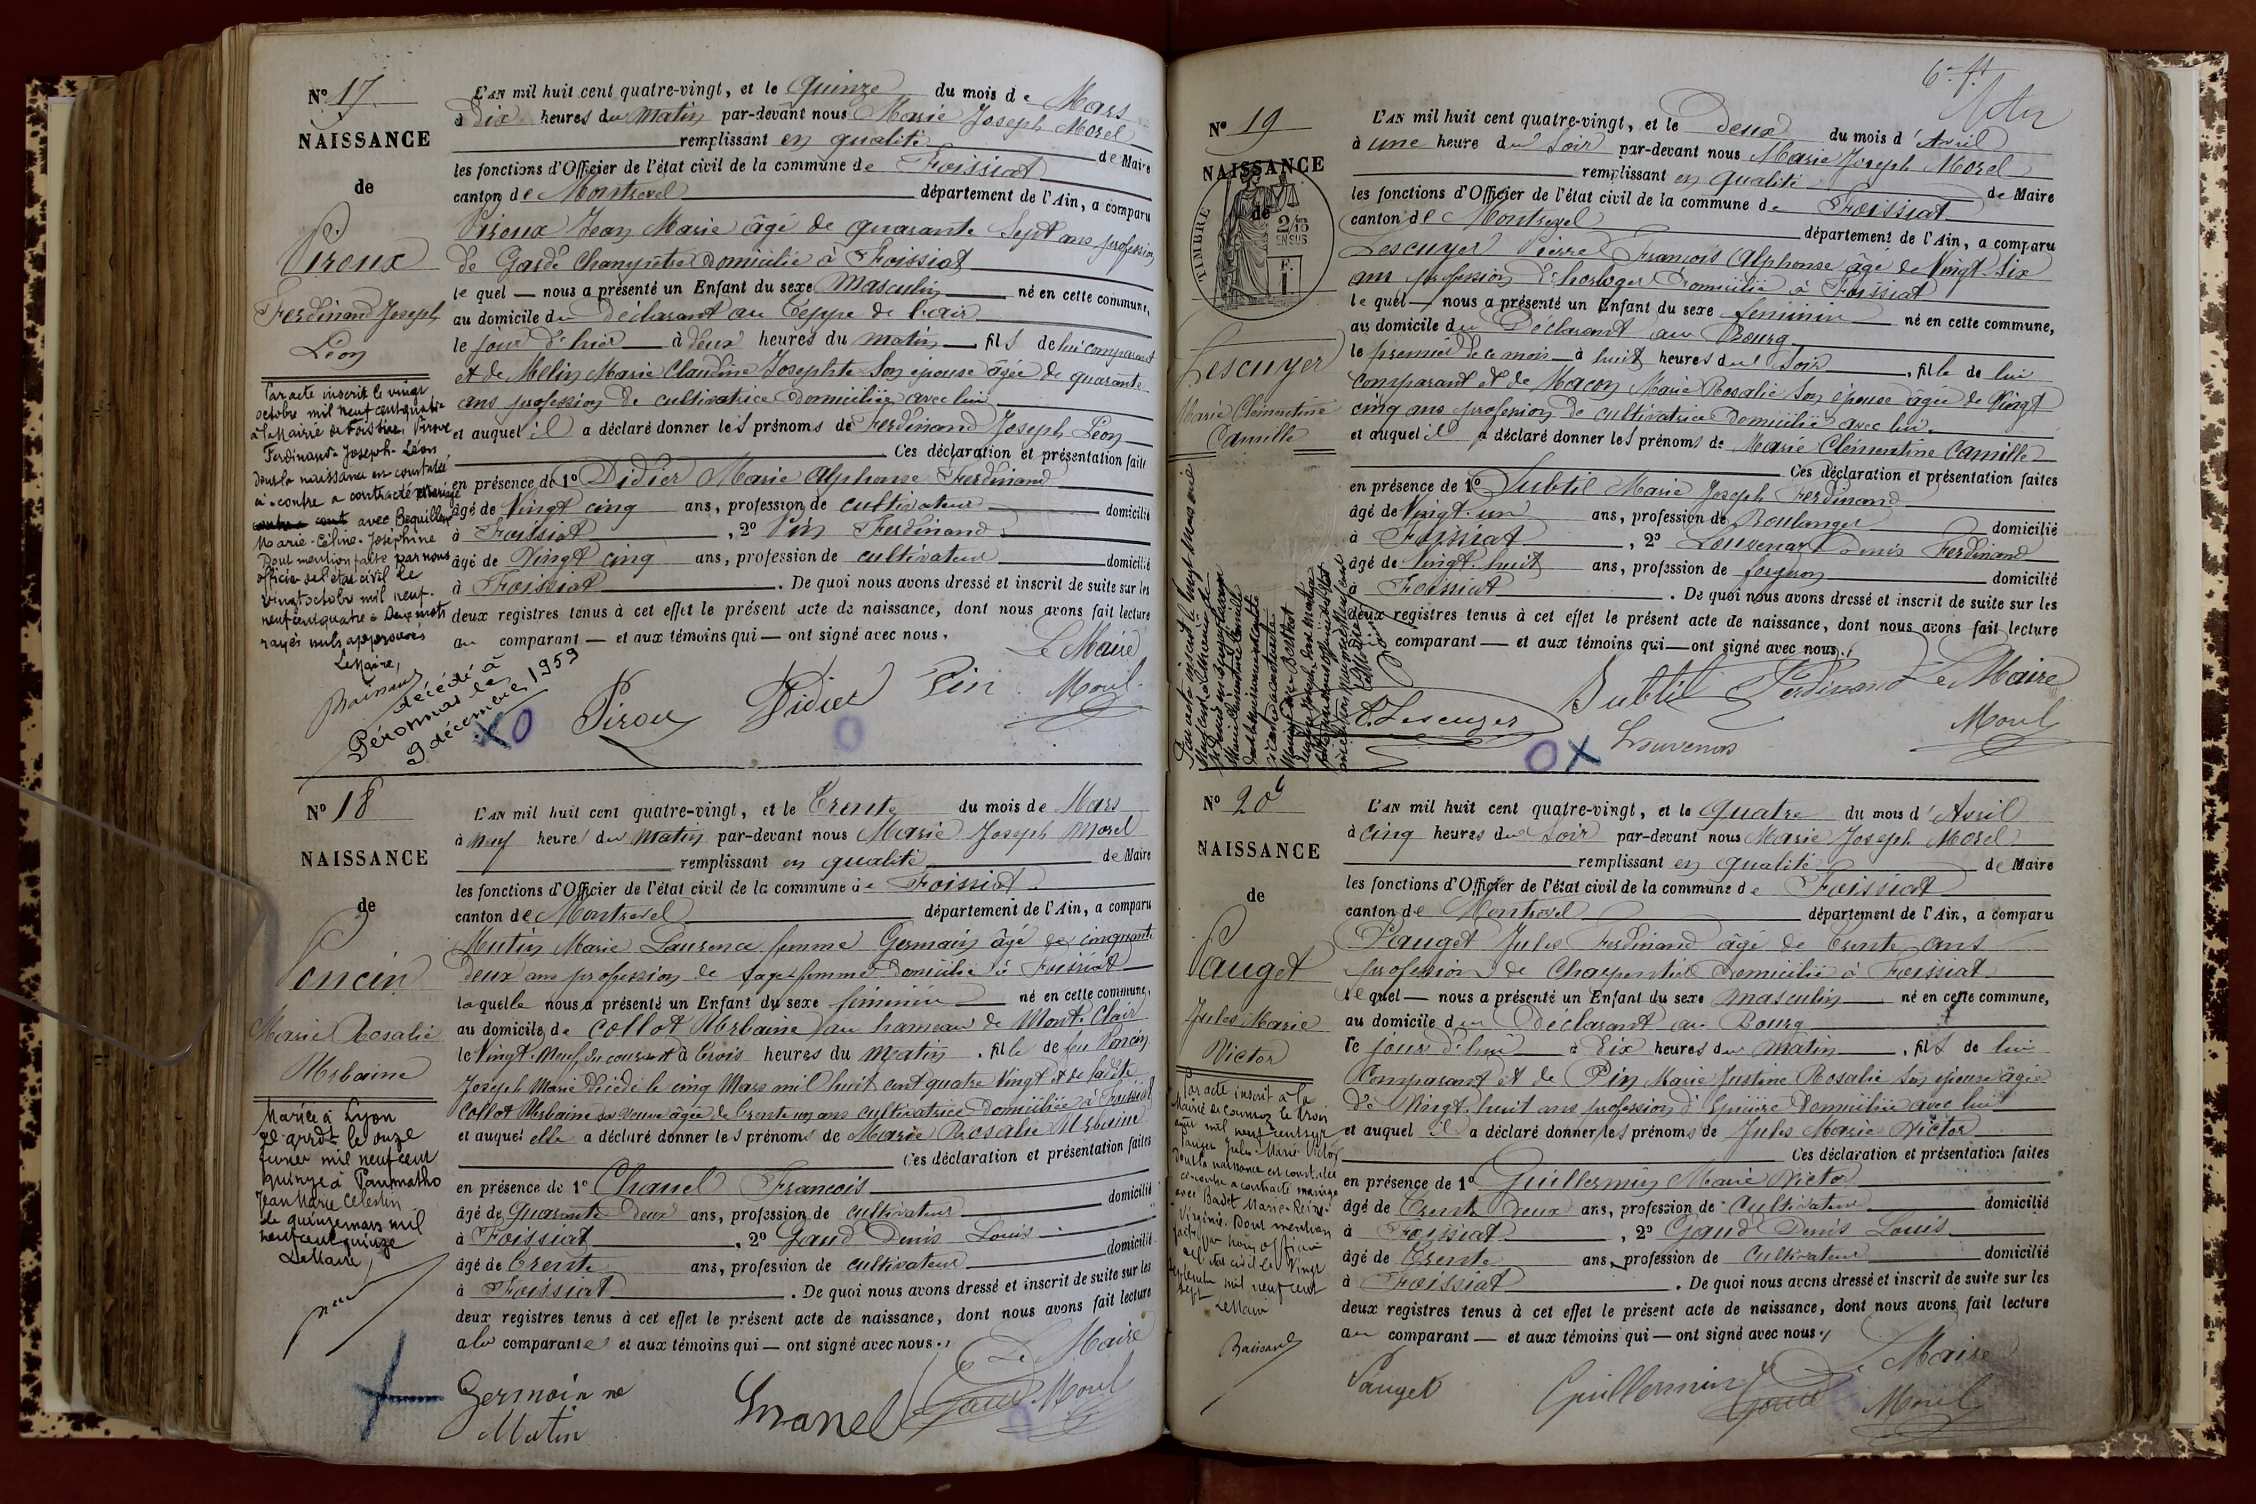 N° 17
NAISSANCE
de
Piroux
Ferdinand Joseph
Léon
Par acte inscrit le vingt
octobre mil neuf cent quatre
à la Mairie de Foissiat, Piroux
Ferdinand-Joseph-Léon
dont la naissance est constatée
ci-contre a contracté mariage
avec Bequillet
Marie-Céline-Joséphine
Dont mention faite par nous
officier de l'état civil le
vingt octobre mil neuf
cent quatre = Deux mots
rayés nuls approuvés
Le Maire,
décédé à
Péronnas le
9 décembre 1959
L'AN mil huit cent quatre-vingt, et le quinze du mois de Mars
à Dix heures du matin par-devant nous Marie Joseph Morel
remplissant en qualité de Maire
les fonctions d'Officier de l'état civil de la commune de Foissiat
canton de Montrevel département de l'Ain, a comparu
Piroux Jean Marie âgé de quarante Sept ans profession
de Garde Champêtre domicilié à Foissiat
le quel — nous a présenté un Enfant du sexe Masculin né en cette commune,
au domicile du Déclarant au Teppe de
le jour d'hier à deux heures du matin fils de lui comparant
et de Melin Marie Claudine Josephte son épouse âgée de quarante
ans profession de cultivatrice domiciliée avec lui
et auquel il a déclaré donner les prénoms de Ferdinand Joseph Léon
Ces déclaration et présentation faites
en présence de 1° Didier Marie Alphonse Ferdinand
âgé de Vingt cinq ans, profession de cultivateur domicilié
à Foissiat, 2° Pin Ferdinand
âgé de Vingt cinq ans, profession de cultivateur domicilié
à Foissiat. De quoi nous avons dressé et inscrit de suite sur les
deux registres tenus à cet effet le présent acte de naissance, dont nous avons fait lecture
au comparant — et aux témoins qui — ont signé avec nous.
Le Maire
Piroux Didier Pin Morel
N° 18
NAISSANCE
de
Poncin
Marie Rosalie
Urbaine
Mariée à Lyon
2e arrdt le onze
février mil neuf cent
quinze à
Jean Marie Célestin
Le quinze mars mil
neuf cent quinze
Le Maire,
L'AN mil huit cent quatre-vingt, et le Trente du mois de Mars
à Neuf heures du Matin par-devant nous Marie Joseph Morel
remplissant en qualité de Maire
les fonctions d'Officier de l'état civil de la commune de Foissiat
canton de Montrevel département de l'Ain, a comparu
Mutin Marie Laurence femme Germain âgé de cinquante
deux ans profession de sage-femme domicilié à Foissiat
laquelle nous a présenté un Enfant du sexe féminin né en cette commune,
au domicile de Collot Urbaine au hameau de Mont-Clair
le Vingt-Neuf du courant à Trois heures du Matin. fille de feu Poncin
Joseph Marie décédé le cinq Mars mil huit cent quatre Vingt et de ladite
Collot Urbaine sa veuve âgée de Trente un ans cultivatrice domiciliée à Foissiat
et auquel elle a déclaré donner les prénoms de Marie Rosalie Urbaine
Ces déclaration et présentation faites
en présence de 1° Chanel François
âgé de Quarante Deux ans, profession de cultivateur domicilié
à Foissiat, 2° Gaud Denis Louis
âgé de Trente ans, profession de cultivateur domicilié
à Foissiat. De quoi nous avons dressé et inscrit de suite sur les
deux registres tenus à cet effet le présent acte de naissance, dont nous avons fait lecture
à la comparante et aux témoins qui — ont signé avec nous.
Le Maire
Germain né
Mutin
Chanel Gaud Morel
N° 19
NAISSANCE
de
TIMBRE
2/10
EN SUS
1 F.
Lescuyer
Marie Clémentine
Camille
L'AN mil huit cent quatre-vingt, et le Deux du mois d'Avril
à une heure du soir par-devant nous Marie Joseph Morel
remplissant en qualité de Maire
les fonctions d'Officier de l'état civil de la commune de Foissiat
canton de Montrevel département de l'Ain, a comparu
Lescuyer Pierre François Alphonse âgé de Vingt-Six
ans profession d'horloger domicilié à Foissiat
le quel — nous a présenté un Enfant du sexe féminin né en cette commune,
au domicile du Déclarant au Bourg
le premier de ce mois à huit heures du soir. fille de lui
comparant et de Macon Marie Rosalie son épouse âgée de Vingt
cinq ans profession de cultivatrice domiciliée avec lui
et auquel il a déclaré donner les prénoms de Marie Clémentine Camille
Ces déclaration et présentation faites
en présence de 1° Subtil Marie Joseph Ferdinand
âgé de Vingt-un ans, profession de Boulanger domicilié
à Foissiat, 2° Louvenas Denis Ferdinand
âgé de Vingt-huit ans, profession de domicilié
à Foissiat. De quoi nous avons dressé et inscrit de suite sur les
deux registres tenus à cet effet le présent acte de naissance, dont nous avons fait lecture
comparant — et aux témoins qui — ont signé avec nous.
Lescuyer Subtil Ferdinand Le Maire
Louvenas Morel
N° 20
NAISSANCE
de
Pauget
Jules Marie
Victor
Par acte inscrit à la
Mairie de le trois
mil neuf cent sept
Pauget Jules-Marie Victor
dont la naissance est constatée
ci-contre a contracté mariage
avec Badet Marie-Reine-
Virginie. Dont mention
faite par nous officier
de l'état civil le Vingt
septembre mil neuf cent
sept
Le Maire
L'AN mil huit cent quatre-vingt, et le Quatre du mois d'Avril
à cinq heures du soir par-devant nous Marie Joseph Morel
remplissant en qualité de Maire
les fonctions d'Officier de l'état civil de la commune de Foissiat
canton de Montrevel département de l'Ain, a comparu
Pauget Jules Ferdinand âgé de Trente ans
profession de Charpentier domicilié à Foissiat
le quel — nous a présenté un Enfant du sexe masculin né en cette commune,
au domicile du Déclarant au Bourg
le jour d'hui à Dix heures du matin. fils de lui
comparant et de Pin Marie Justine Rosalie son épouse âgée
de Vingt-huit ans profession d'Epicière domiciliée avec lui
et auquel il a déclaré donner les prénoms de Jules Marie Victor
Ces déclaration et présentation faites
en présence de 1° Guillermin Marie Victor
âgé de Trente deux ans, profession de Cultivateur domicilié
à Foissiat, 2° Gaud Denis Louis
âgé de Trente ans, profession de Cultivateur domicilié
à Foissiat. De quoi nous avons dressé et inscrit de suite sur les
deux registres tenus à cet effet le présent acte de naissance, dont nous avons fait lecture
au comparant — et aux témoins qui — ont signé avec nous.
Le Maire
Pauget Guillermin Gaud Morel